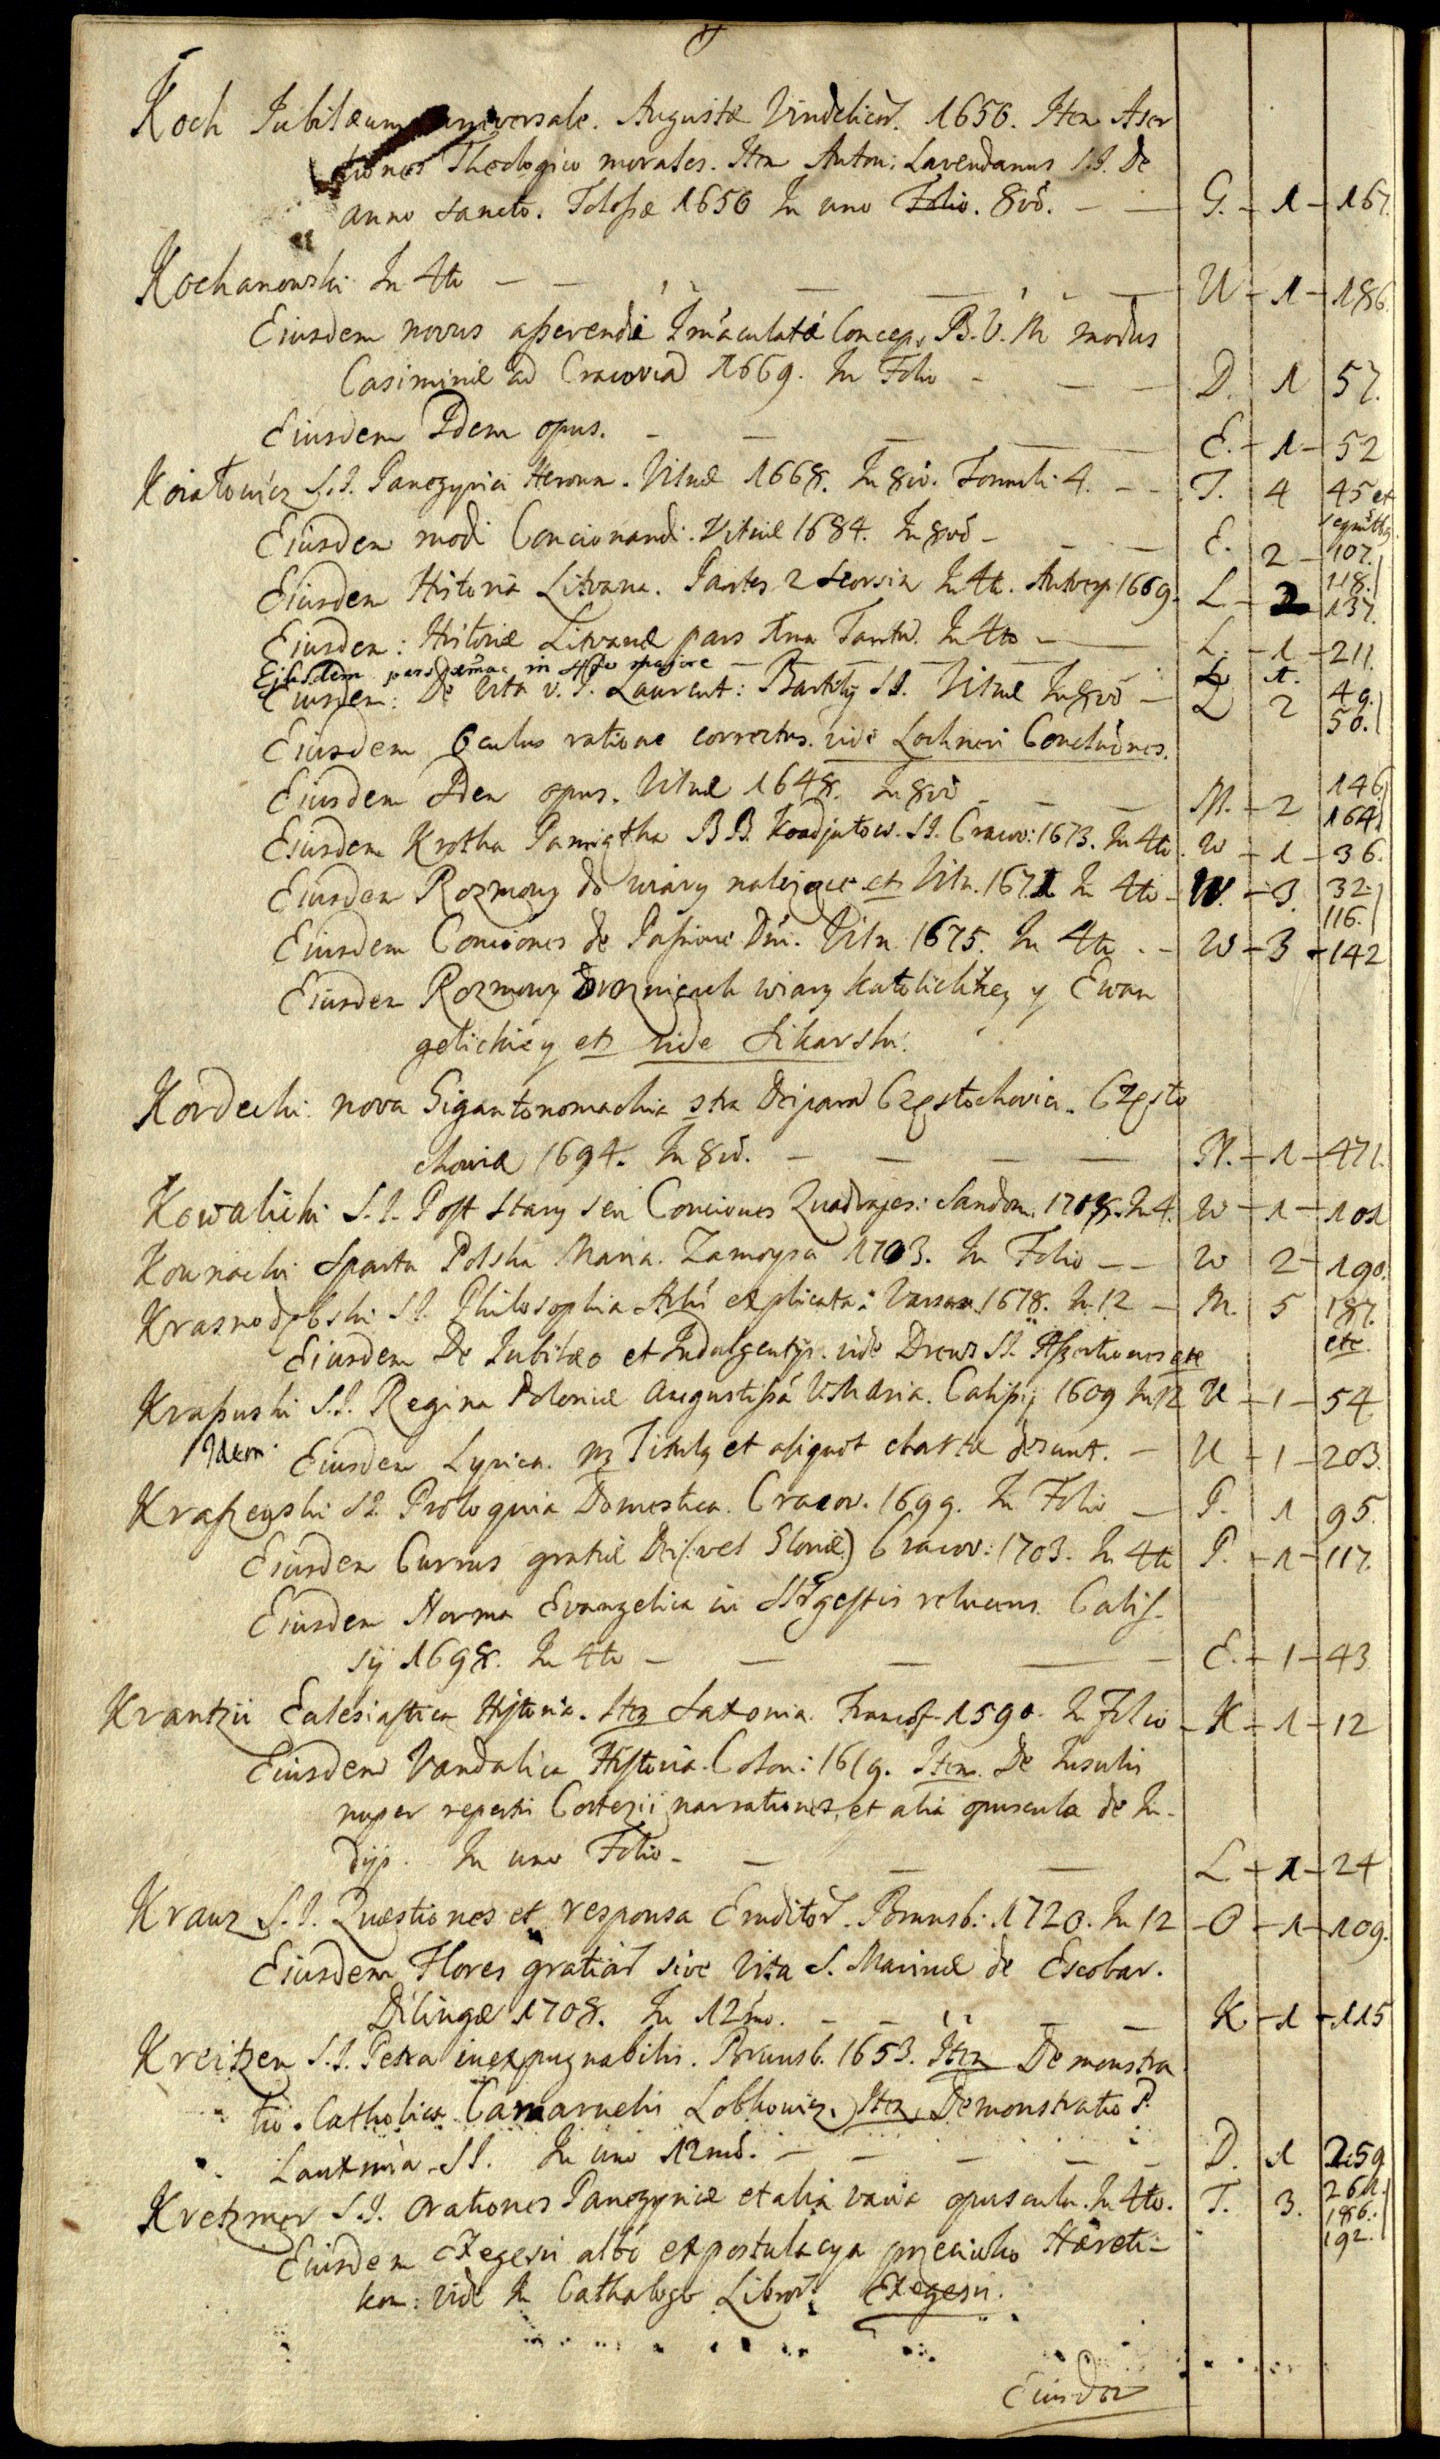 Koch Jubilæum universale. Augustæ Vindelicor. 1650. Item Aser
tiones Theologico morales. Item Anton: Lavendanus S.J. De
anno Sancto. Tolosæ 1650 In uno Folio. 8vo. — — G. – 1 – 167.
Kochanowski In 4to — — — — — U – 1 – 186.
Eiusdem novus asserendi Im̃aculatã Concep. B.V.M. modus
Casimiriæ ad Cracoviã 1669. In Folio — — — D. 1 57.
Eiusdem Idem opus. — — — — E. – 1 – 52
Koiałowicz S.J. Panegyrici Heroum. Vilnæ 1668. In 8vo. Tomuli 4. — — T. 4 45 et
seqntbs
Eiusdem modi Concionandi. Vilnæ 1684. In 8vo — — — E. 2 – 107.
118.
Eiusdem Historia Litvana. Partes 2 seorsim In 4to. Antverp. 1669. L – 2 – 137.
Eiusdem: Historiæ Litvanæ pars 1ma Tantu. In 4to — — L. – 1 – 211.
Eiusdem pars 2da in 4to majore — — — — L. 1.
Eiusdem: De Vita v. P. Laurent: Bartilij S.J. Vilnæ In 8vo — L 2 49.
50.
Eiusdem Oculus ratione correctus. vide Lochneri Concluönes.
Eiusdem Idem opus. Vilnæ 1648. In 8vo — — — M. – 2 146
164
Eiusdem Krotka Pamiątka BB. Koadjutow. S.J. Cracov: 1673. In 4to. W – 1 – 36.
Eiusdem Rozmowy do wiary należące et Viln. 1671 In 4to – W. – 3. 32.
116.
Eiusdem Conciones de Passione Dni. Viln. 1675. In 4to. – W – 3 – 142
Eiusdem Rozmowy o roznicach wiary katolickiey y Ewan
gelickiey et vide Sikorski.
Kordecki nova Gigantomachia ctra Deiparã Częstochoviæ. Często
choviæ 1694. In 8vo. — — — — N. – 1 – 471.
Kowalicki S.J. Post Stary seu Conciones Quadrages: Sandom. 1708. In 4. W – 1 – 101
Kownacki Sparta Polska Maria. Zamoysci 1703. In Folio — — W 2 – 190.
Krasnodębski S.J. Philosophia Arlis explicata: Varsav. 1678. In 12 — M. 5 187.
etc.
Eiusdem De Jubilæo et Indulgentijs. vide Drews S.J. Assertiones etc
Krasuski S.J. Regina Poloniæ Augustissã V. Maria. Calissij 1609 In 12 U – 1 – 54.
Idem Eiusdem Lyrica. Titulg et aliquot chartæ desunt. — U – 1 – 203.
Krapeyski S.J. Proloquia Domestica. Cracov. 1699. In Folio — P. 1 95.
Eiusdem Currus gratiæ Dei (vel Gloriæ) Cracov: 1703. In 4to P. – 1 – 117.
Eiusdem Norma Evangelica in gestis relucens. Calis-
sij 1698. In 4to — — — — — E. – 1 – 43
Krantzii Eclesiastica Hystoria. Item Saxonia. Francof. 1590. In Folio – K – 1 – 12
Eiusdem Vandalica Hystoria. Colon: 1619. Item De Insulis
nuper repertis Cortezii narrationes, et alia opuscula de In-
dijs. In uno Folio — — — — L – 1 – 24
Kraus S.J. Quæstiones et responsa Eruditor. Brunsb: 1720. In 12 – O – 1 – 109.
Eiusdem Flores gratiar sive Vita S. Marinæ de Escobar.
Dilingæ 1708. In 12mo. — — — — K – 1 – 115
Kreitzen S.J. Petra inexpugnabilis. Brunsb. 1653. Item Demonstra
tio. Catholica Caramuelis Lobkowicz. Item, Demonstratio P.
S.J. In uno 12mo. — — — — D. 1 259
Kretzmer S.J. Orationes Panegyricæ et alia varia opuscula. In 4to. T. 3. 261.
186.
192.
Eiusdem Exegesis albo expostulacya przeciwko Hæreti-
kom: vide In Cathalogo Libror. Exegesis.
Eiusdem